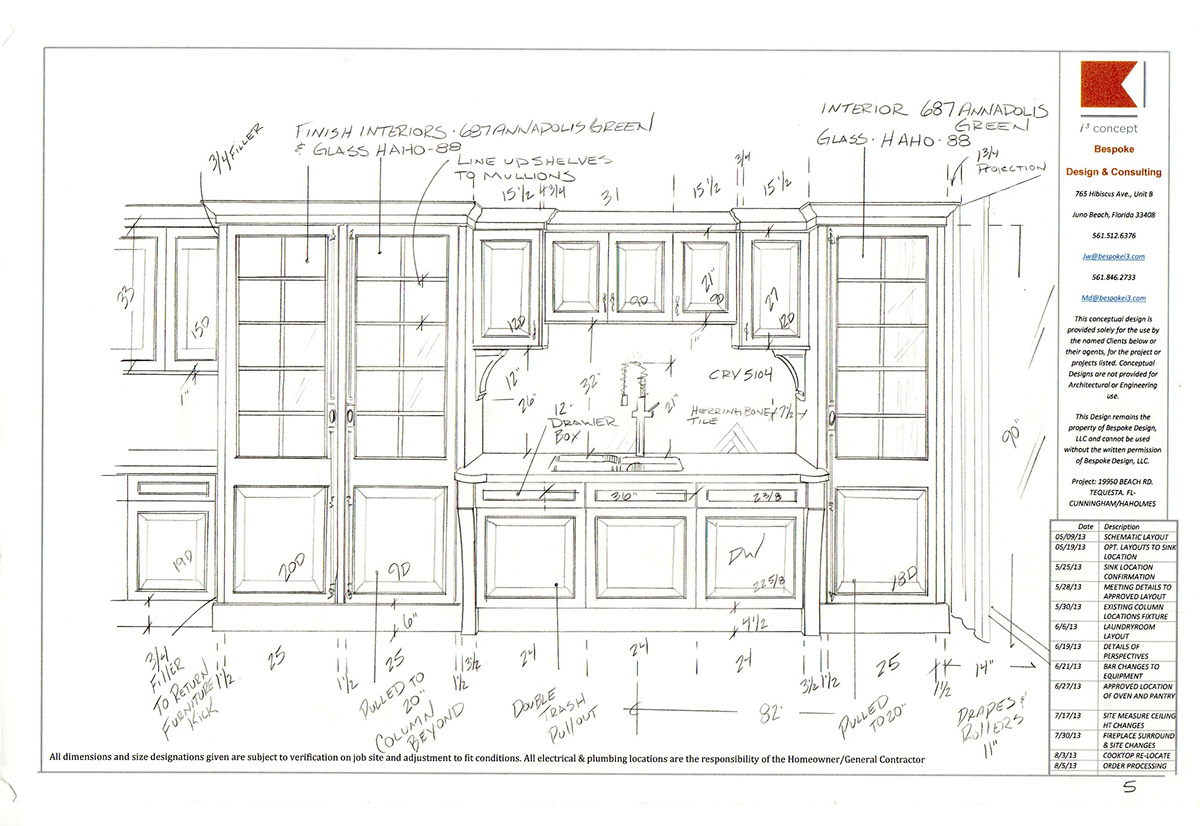 3/4 FILLER
FINISH INTERIORS · 687 ANNAPOLIS GREEN
& GLASS HAHO-88
LINE UP SHELVES
TO MULLIONS
INTERIOR 687 ANNAPOLIS
GREEN
GLASS · HAHO-88
1 3/4
PROJECTION
15 1/2
4 3/4
31
15 1/2
3/4
15 1/2
33
15D
12D
9D
21"
9D
27
12D
1"
1"
12"
26"
32"
21"
CRV 5104
HERRINGBONE
TILE
7 1/2
12"
DRAWER
BOX
90"
36"
2 3/8
19D
20D
9D
DW
22 5/8
18D
6"
4 1/2
3/4
FILLER
TO RETURN
FURNITURE
KICK
1 1/2
25
1 1/2
25
1 1/2
3 1/2
24
24
24
3 1/2
1 1/2
25
1 1/2
14"
PULLED TO
20"
COLUMN
BEYOND
DOUBLE
TRASH
PULLOUT
82"
PULLED
TO 20"
DRAPES &
ROLLERS
11"
All dimensions and size designations given are subject to verification on job site and adjustment to fit conditions. All electrical & plumbing locations are the responsibility of the Homeowner/General Contractor
i³ concept
Bespoke
Design & Consulting
765 Hibiscus Ave., Unit B
Juno Beach, Florida 33408
561.512.6376
Jw@bespokei3.com
561.846.2733
Md@bespokei3.com
This conceptual design is
provided solely for the use by
the named Clients below or
their agents, for the project or
projects listed. Conceptual
Designs are not provided for
Architectural or Engineering
use.
This Design remains the
property of Bespoke Design,
LLC and cannot be used
without the written permission
of Bespoke Design, LLC.
Project: 19950 BEACH RD.
TEQUESTA. FL-
CUNNINGHAM/HAHOLMES
Date Description
05/09/13 SCHEMATIC LAYOUT
05/19/13 OPT. LAYOUTS TO SINK
LOCATION
5/25/13 SINK LOCATION
CONFIRMATION
5/28/13 MEETING DETAILS TO
APPROVED LAYOUT
5/30/13 EXISTING COLUMN
LOCATIONS FIXTURE
6/6/13 LAUNDRYROOM
LAYOUT
6/19/13 DETAILS OF
PERSPECTIVES
6/21/13 BAR CHANGES TO
EQUIPMENT
6/27/13 APPROVED LOCATION
OF OVEN AND PANTRY
7/17/13 SITE MEASURE CEILING
HT CHANGES
7/30/13 FIREPLACE SURROUND
& SITE CHANGES
8/3/13 COOKTOP RE-LOCATE
8/5/13 ORDER PROCESSING
5